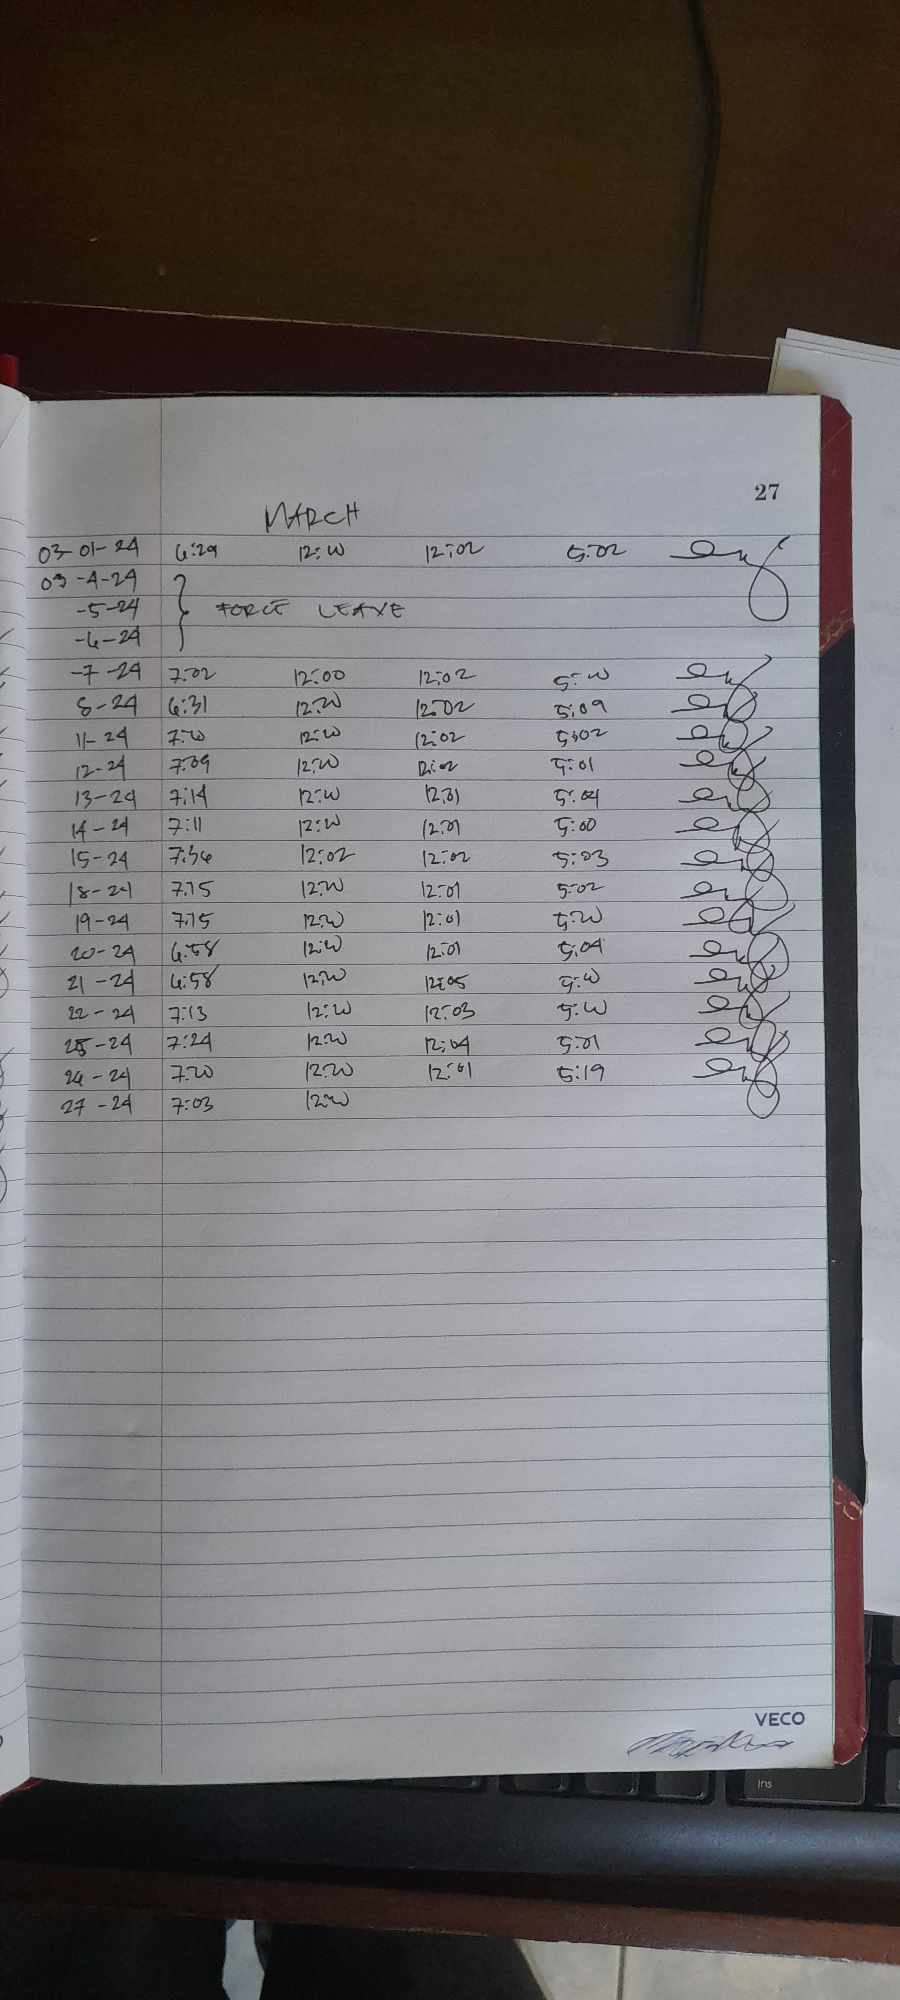 27
MARCH
03-01-24 6:29 12:00 12:02 5:02
03-4-24
-5-24 FORCE LEAVE
-6-24
-7-24 7:02 12:00 12:02 5:00
8-24 6:31 12:00 12:02 5:09
11-24 7:00 12:00 12:02 5:02
12-24 7:09 12:00 12:02 5:01
13-24 7:14 12:00 12:01 5:04
14-24 7:11 12:00 12:01 5:00
15-24 12:02 12:02 5:03
18-24 7:15 12:00 12:01 5:02
19-24 7:15 12:00 12:01 5:00
20-24 6:58 12:00 12:01 5:04
21-24 6:58 12:00 12:05 5:00
22-24 7:13 12:00 12:03 5:00
25-24 7:24 12:00 12:04 5:01
26-24 7:00 12:00 12:01 5:19
27-24 7:03 12:00
VECO
Ins